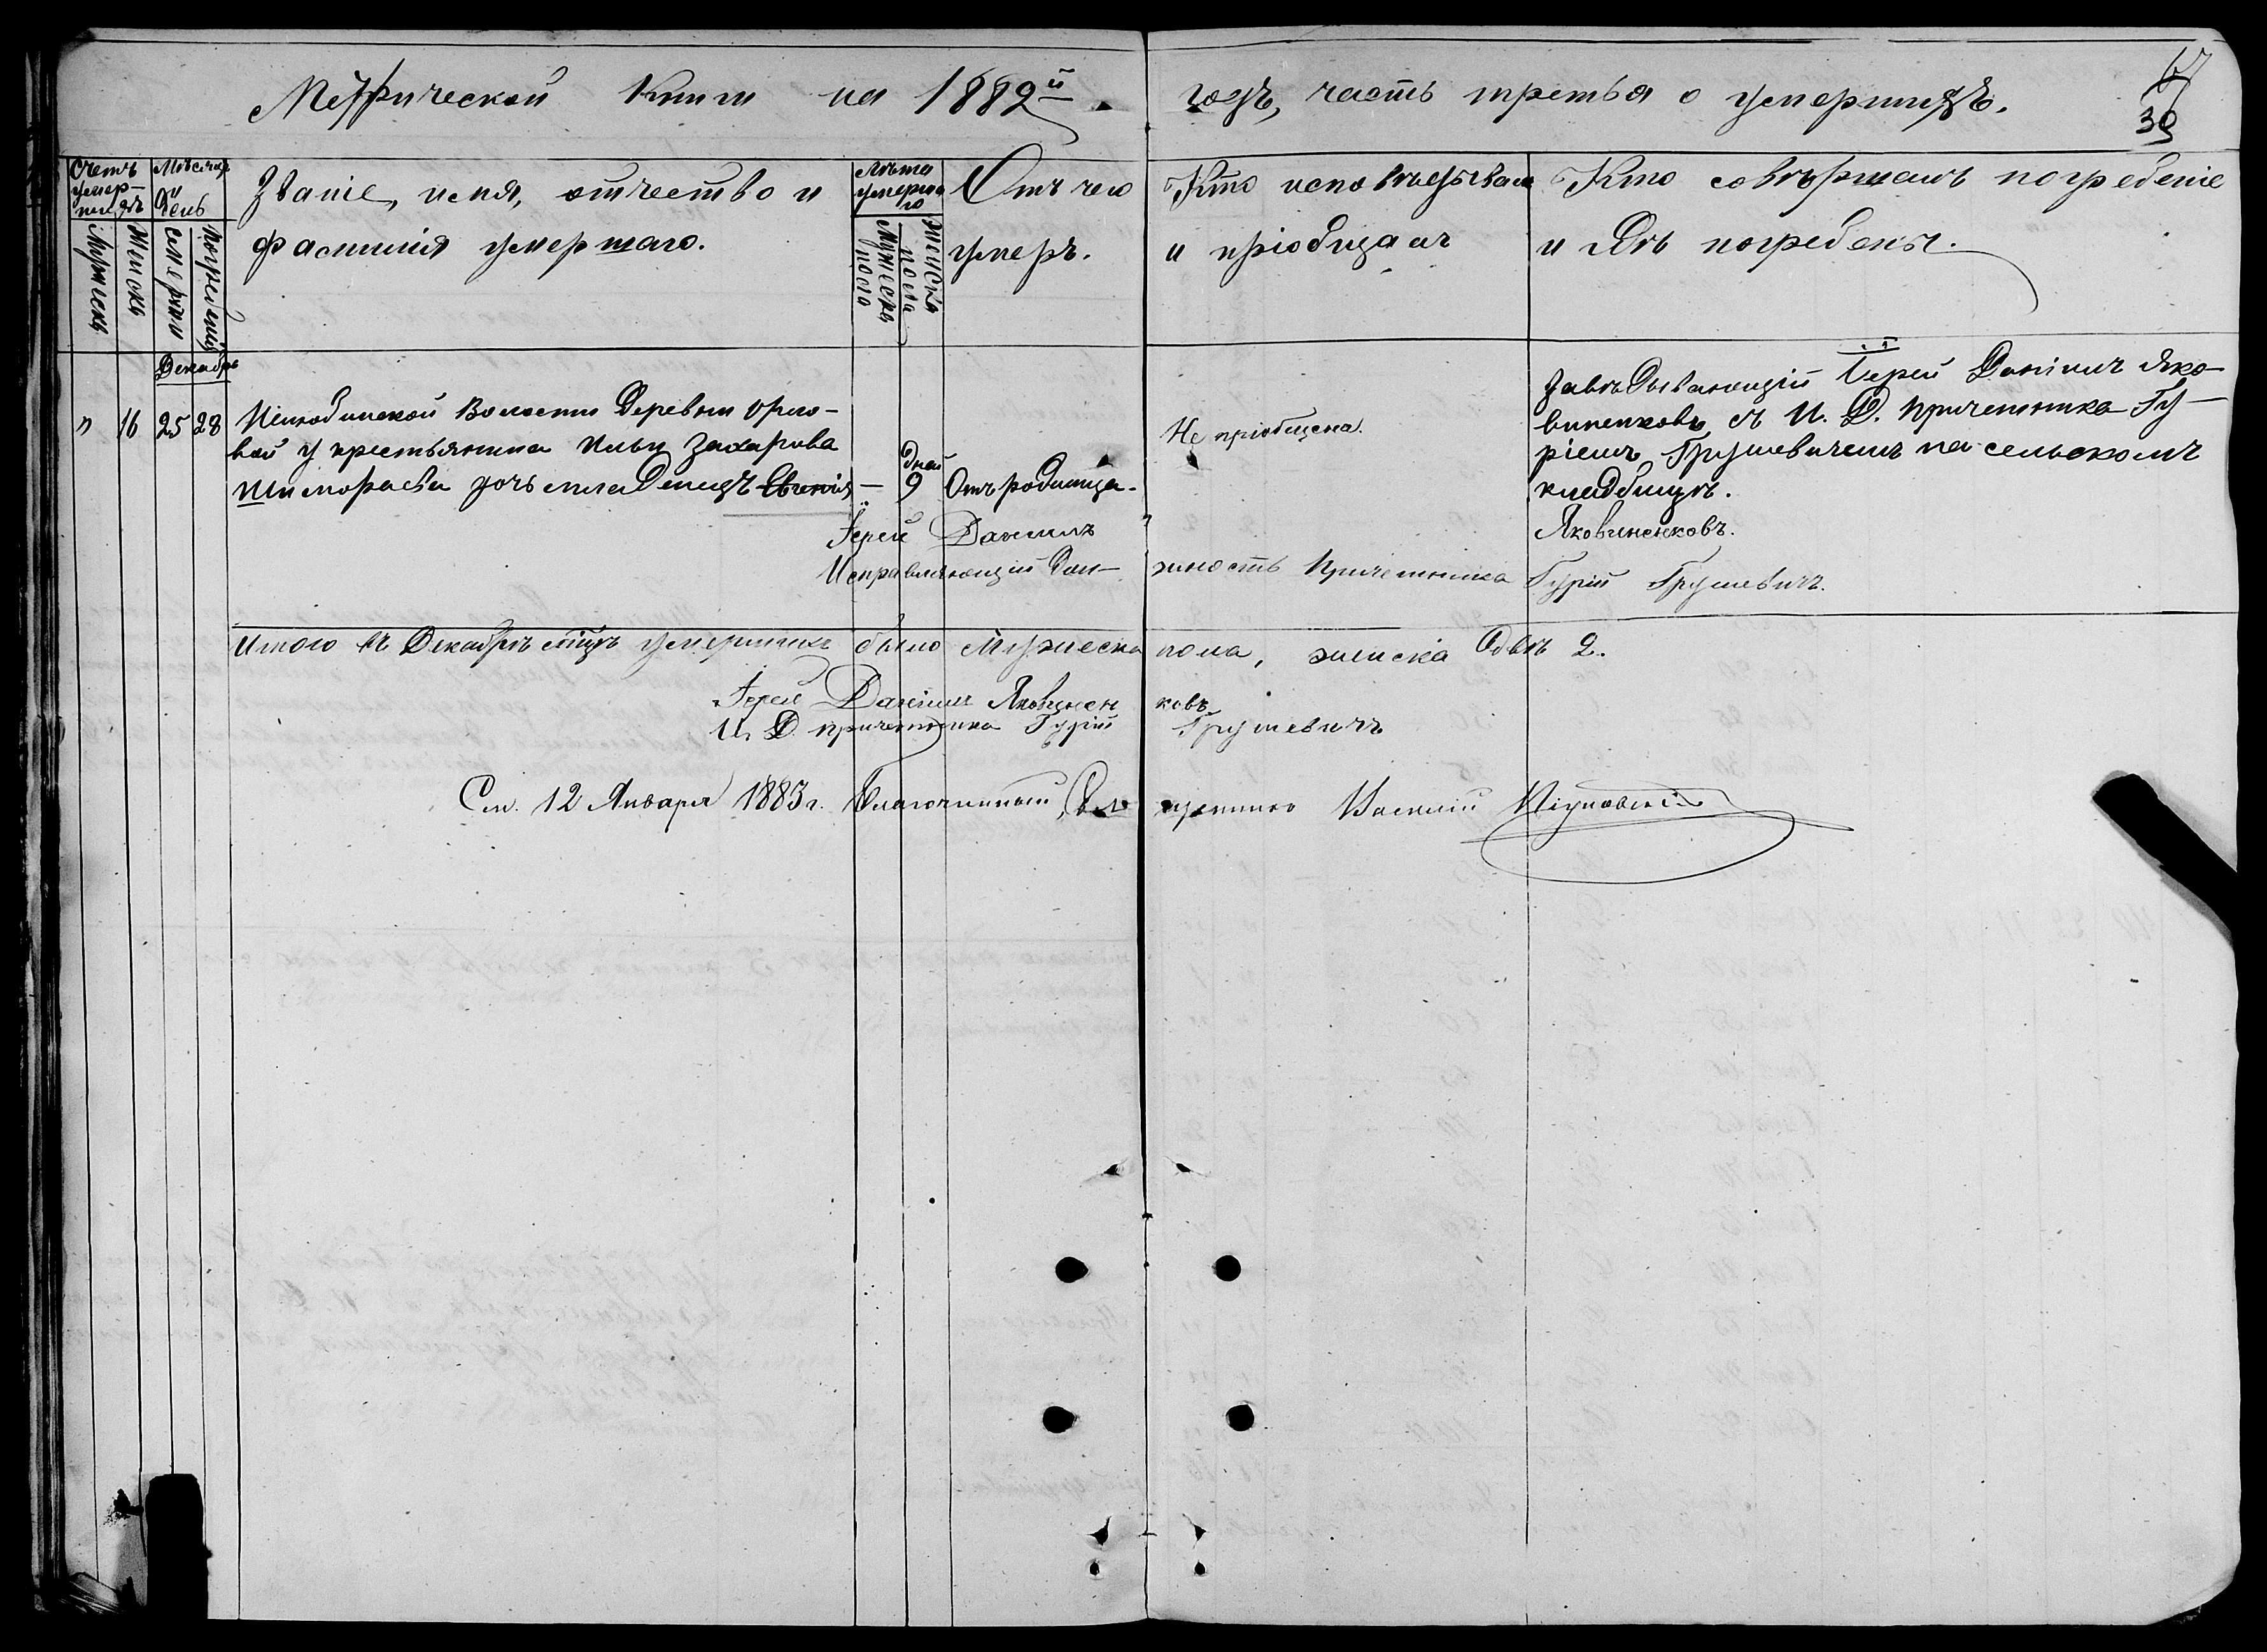 Метрической Книги на 1882й
годъ, часть третья о умершихъ.
67
39
Счетъ умер-шихъ
Мѣсяцъ и День
Званіе, имя, отчество и
фамилія умершаго.
Лѣта умершаго
Отъ чего
умеръ.
Кто исповѣдывалъ
и пріобщалъ
Кто совѣршалъ погребеніе
и гдѣ погребены.
Мужеска
Женска
смерти
погребенія
Мужеска пола
женска пола
Декабрь
" 16 25 28
Волости Деревни Орло-
вой у крестьянина Ильи Захарова
дочь младенецъ Евгенія — 9 дней Отъ родимца.
Не пріобщена.
Завѣдывающій Іерей Даніилъ Яко-
виненковъ съ И. Д. Причетника Гу-
ріемъ Грушевичемъ на сельскомъ
кладбищѣ.
Іерей Даніилъ Яковиненковъ.
Исправляющій Дол- жность Причетника Гурій Грушевичъ.
Итого въ Декабрѣ мѣцѣ умершихъ было Мужеска пола, женска Обѣ 2.
Іерей Даніилъ Яковинен ковъ
И. Д. причетника Гурій Грушевичъ
См. 12 Января 1883 г. Благочинный, Священникъ Василій